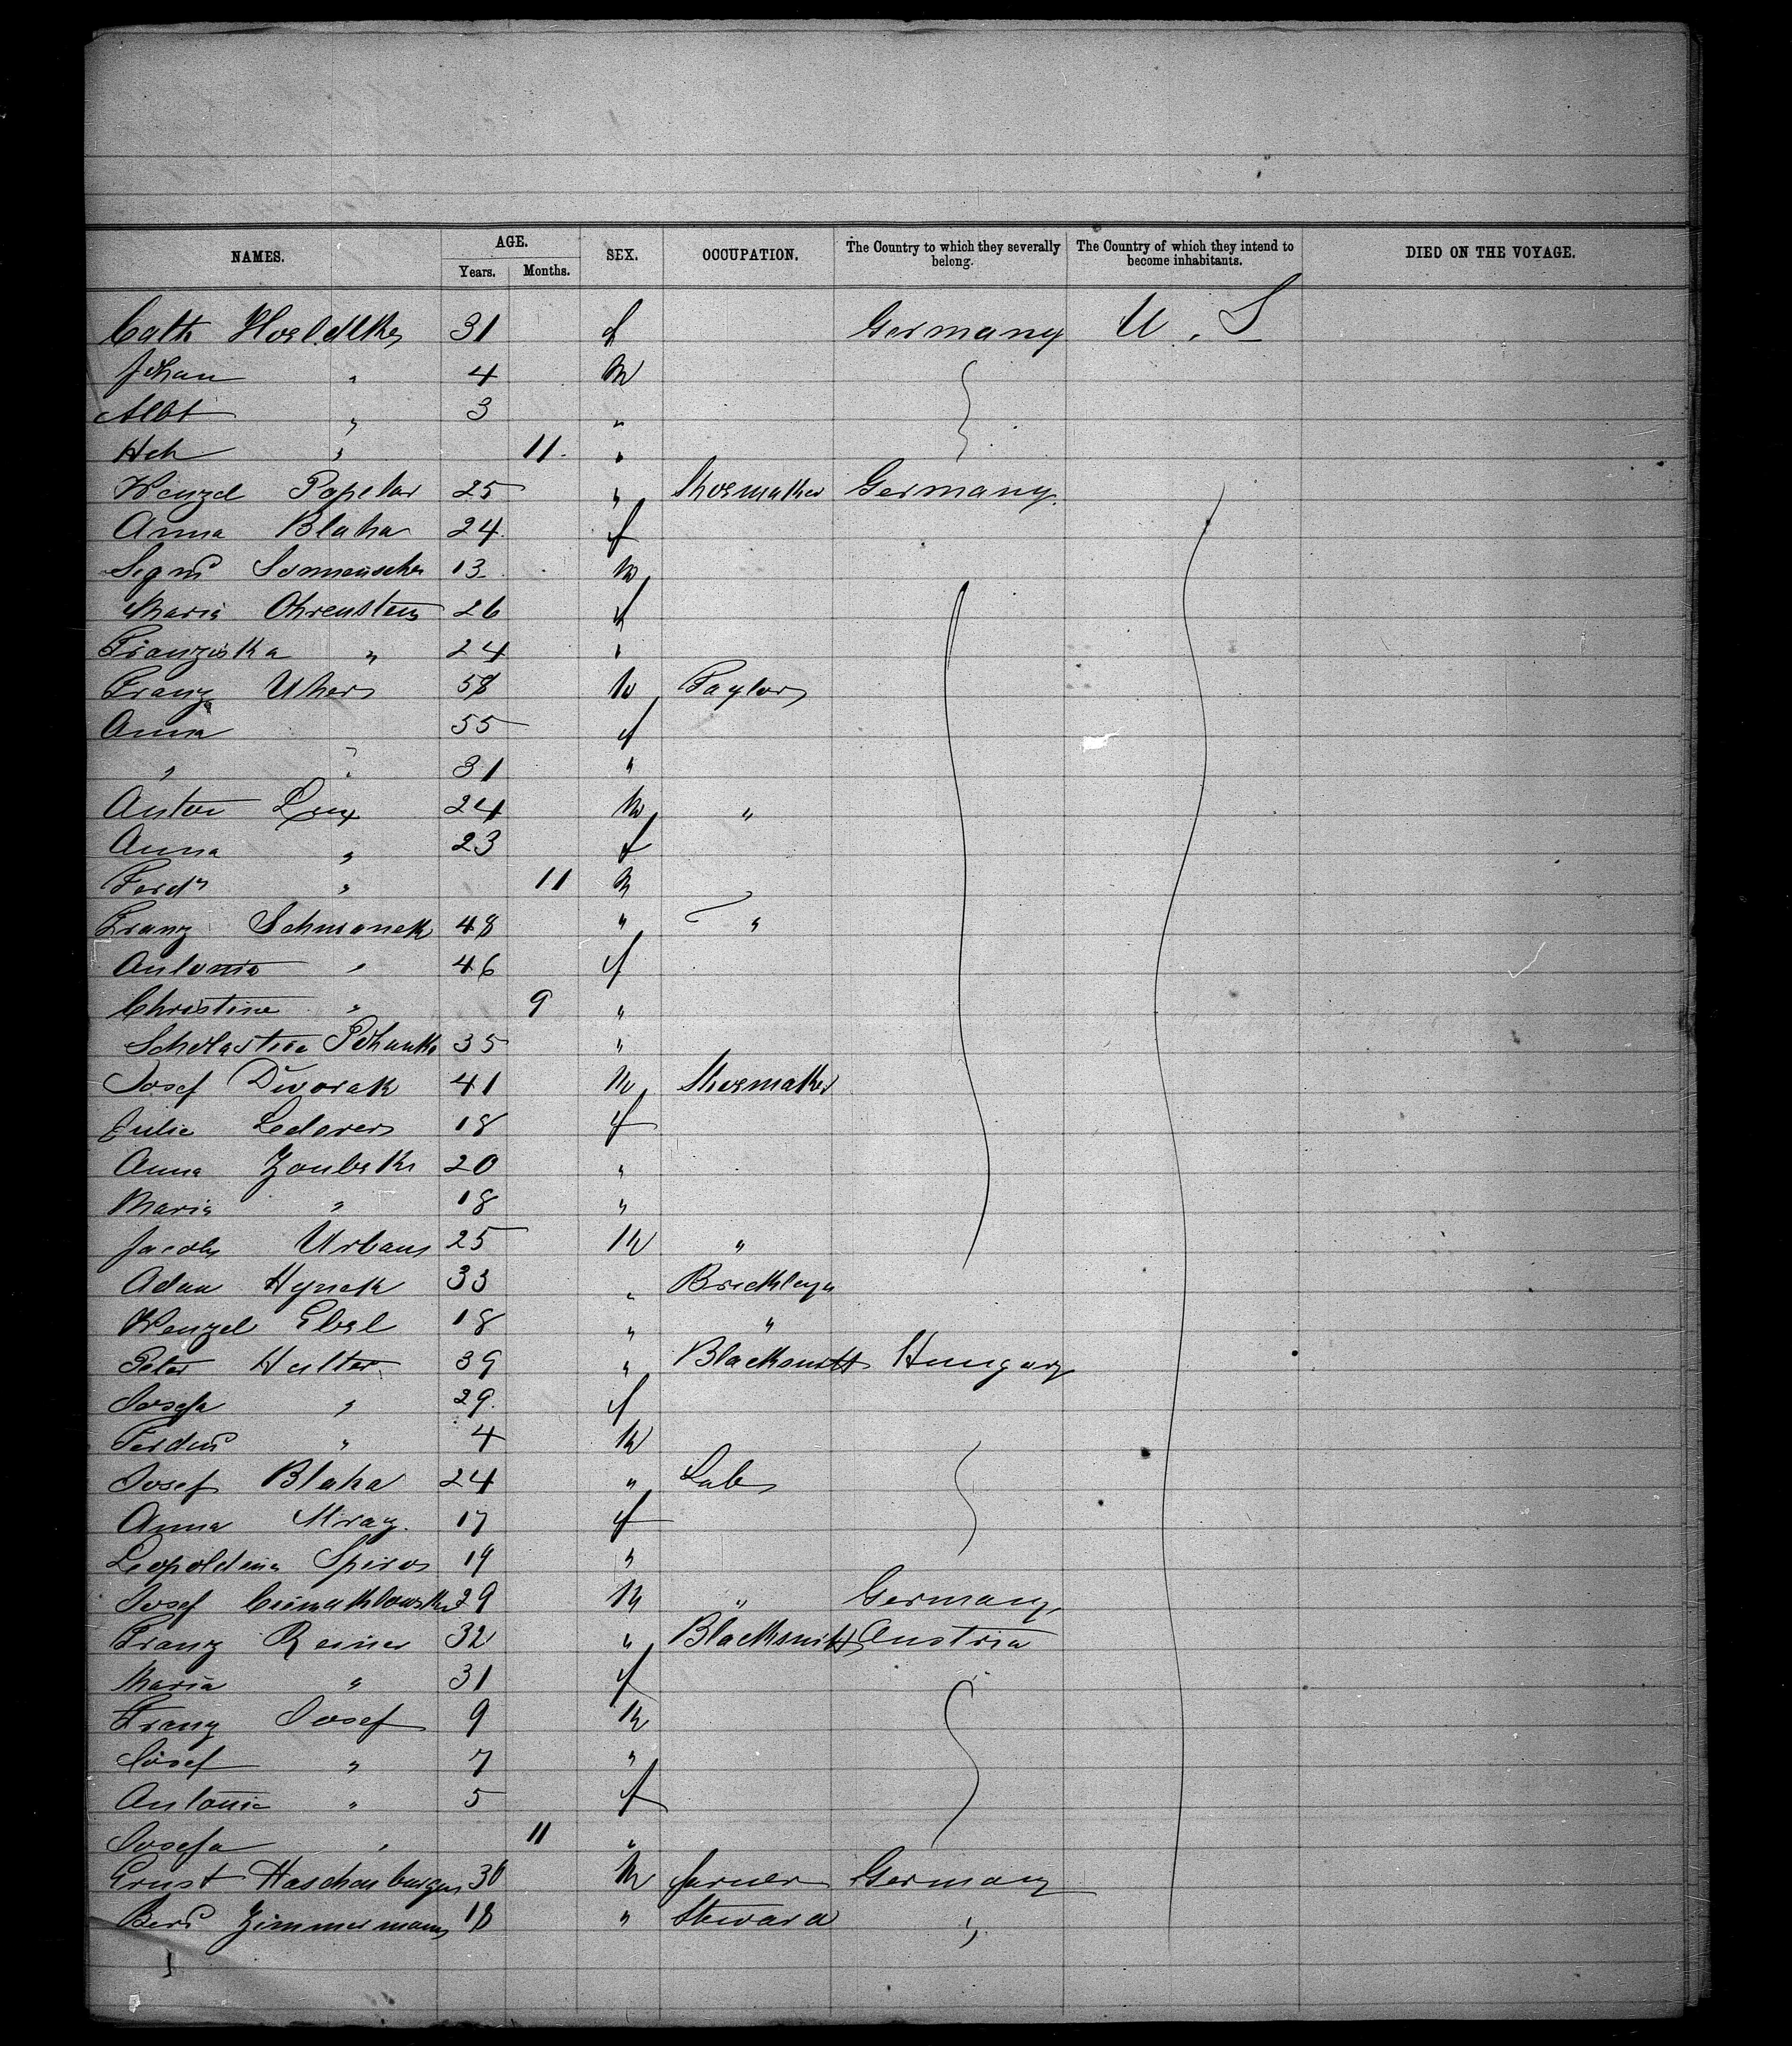 NAMES. AGE. SEX. OCCUPATION. The Country to which they severally belong. The Country of which they intend to become inhabitants. DIED ON THE VOYAGE.
Years. Months.
Cath 31 f Germany U. S
Johan " 4 m
Albt " 3 "
Hch " 11. "
Wenzel Papelar 25 " Shoemaker Germany.
Anna Blaha 24 f
Sigm 13 m
Maria Ohrenstein 26 f
Franziska " 24 "
Franz Uher 58 m Taylor
Anna 55 f
" " 31 "
Anton Lux 24 m "
Anna " 23 f
Ferdn " 11 m
Franz Schwanek 48 " "
Antonia " 46 f
Christine " 9 "
Scholastica 35 "
Josef Dworak 41 m Shoemaker
Julie Lederer 18 f
Anna Zoubek 20 "
Maria " 18 "
Jacob Urban 25 m "
Adam Hynek 33 " Bricklayr
Wenzel Ebel 18 " "
Peter Halter 39 " Blacksmith Hungary
Josefa " 29. f
Ferdin " 4 m
Josef Blaha 24 " Lab
Anna Mraz. 17 f
Leopoldina Spiro 19 "
Josef 29 m " Germany
Franz Reiner 32 " Blacksmith Austria
Maria " 31 f
Franz Josef 9 m
Josef " 7 "
Antonie " 5 f
Josefa " 11 "
Ernst Haschenburger 30 m farmer Germany
Bern Zimmermann 18 " Steward "